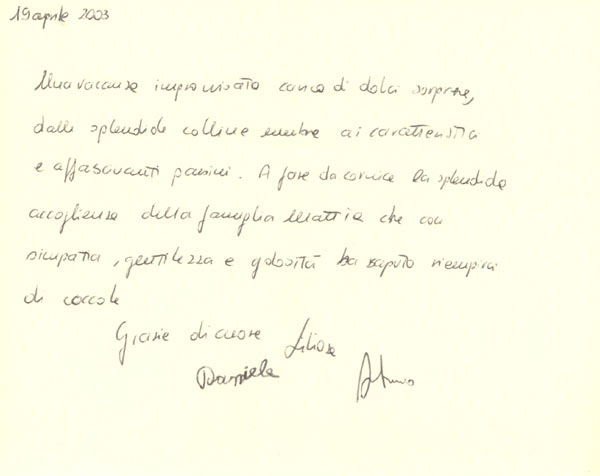 19 aprile 2003
Una vacanza improvvisata carica di dolci sorprese,
dalle splendide colline umbre ai caratteristici
e affascinanti paesini. A fare da cornice la splendida
accoglienza della famiglia Mattia che con
simpatia, gentilezza e golosità ha saputo riempirci
di coccole
Grazie di cuore Liliana
Daniele